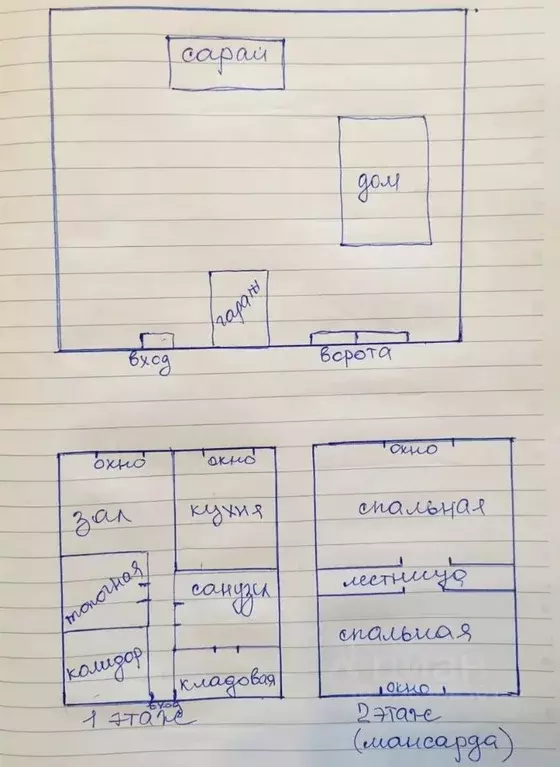 сарай
дом
гараж
вход
ворота
окно
окно
зал
кухня
топочная
санузел
колидор
кладовая
вход
1 этаж
окно
спальная
лестница
спальная
окно
2 этаж
(мансарда)